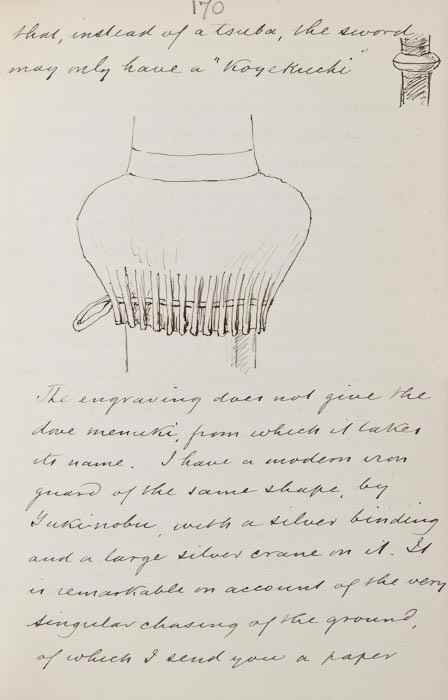 170
that, instead of a tsuba, the sword
may only have a "Koyekuchi"
The engraving does not give the
dove menuki, from which it takes
its name. I have a modern iron
guard of the same shape, by
Yukinobu, with a silver binding
and a large silver crane on it. It
is remarkable on account of the very
singular chasing of the ground,
of which I send you a paper